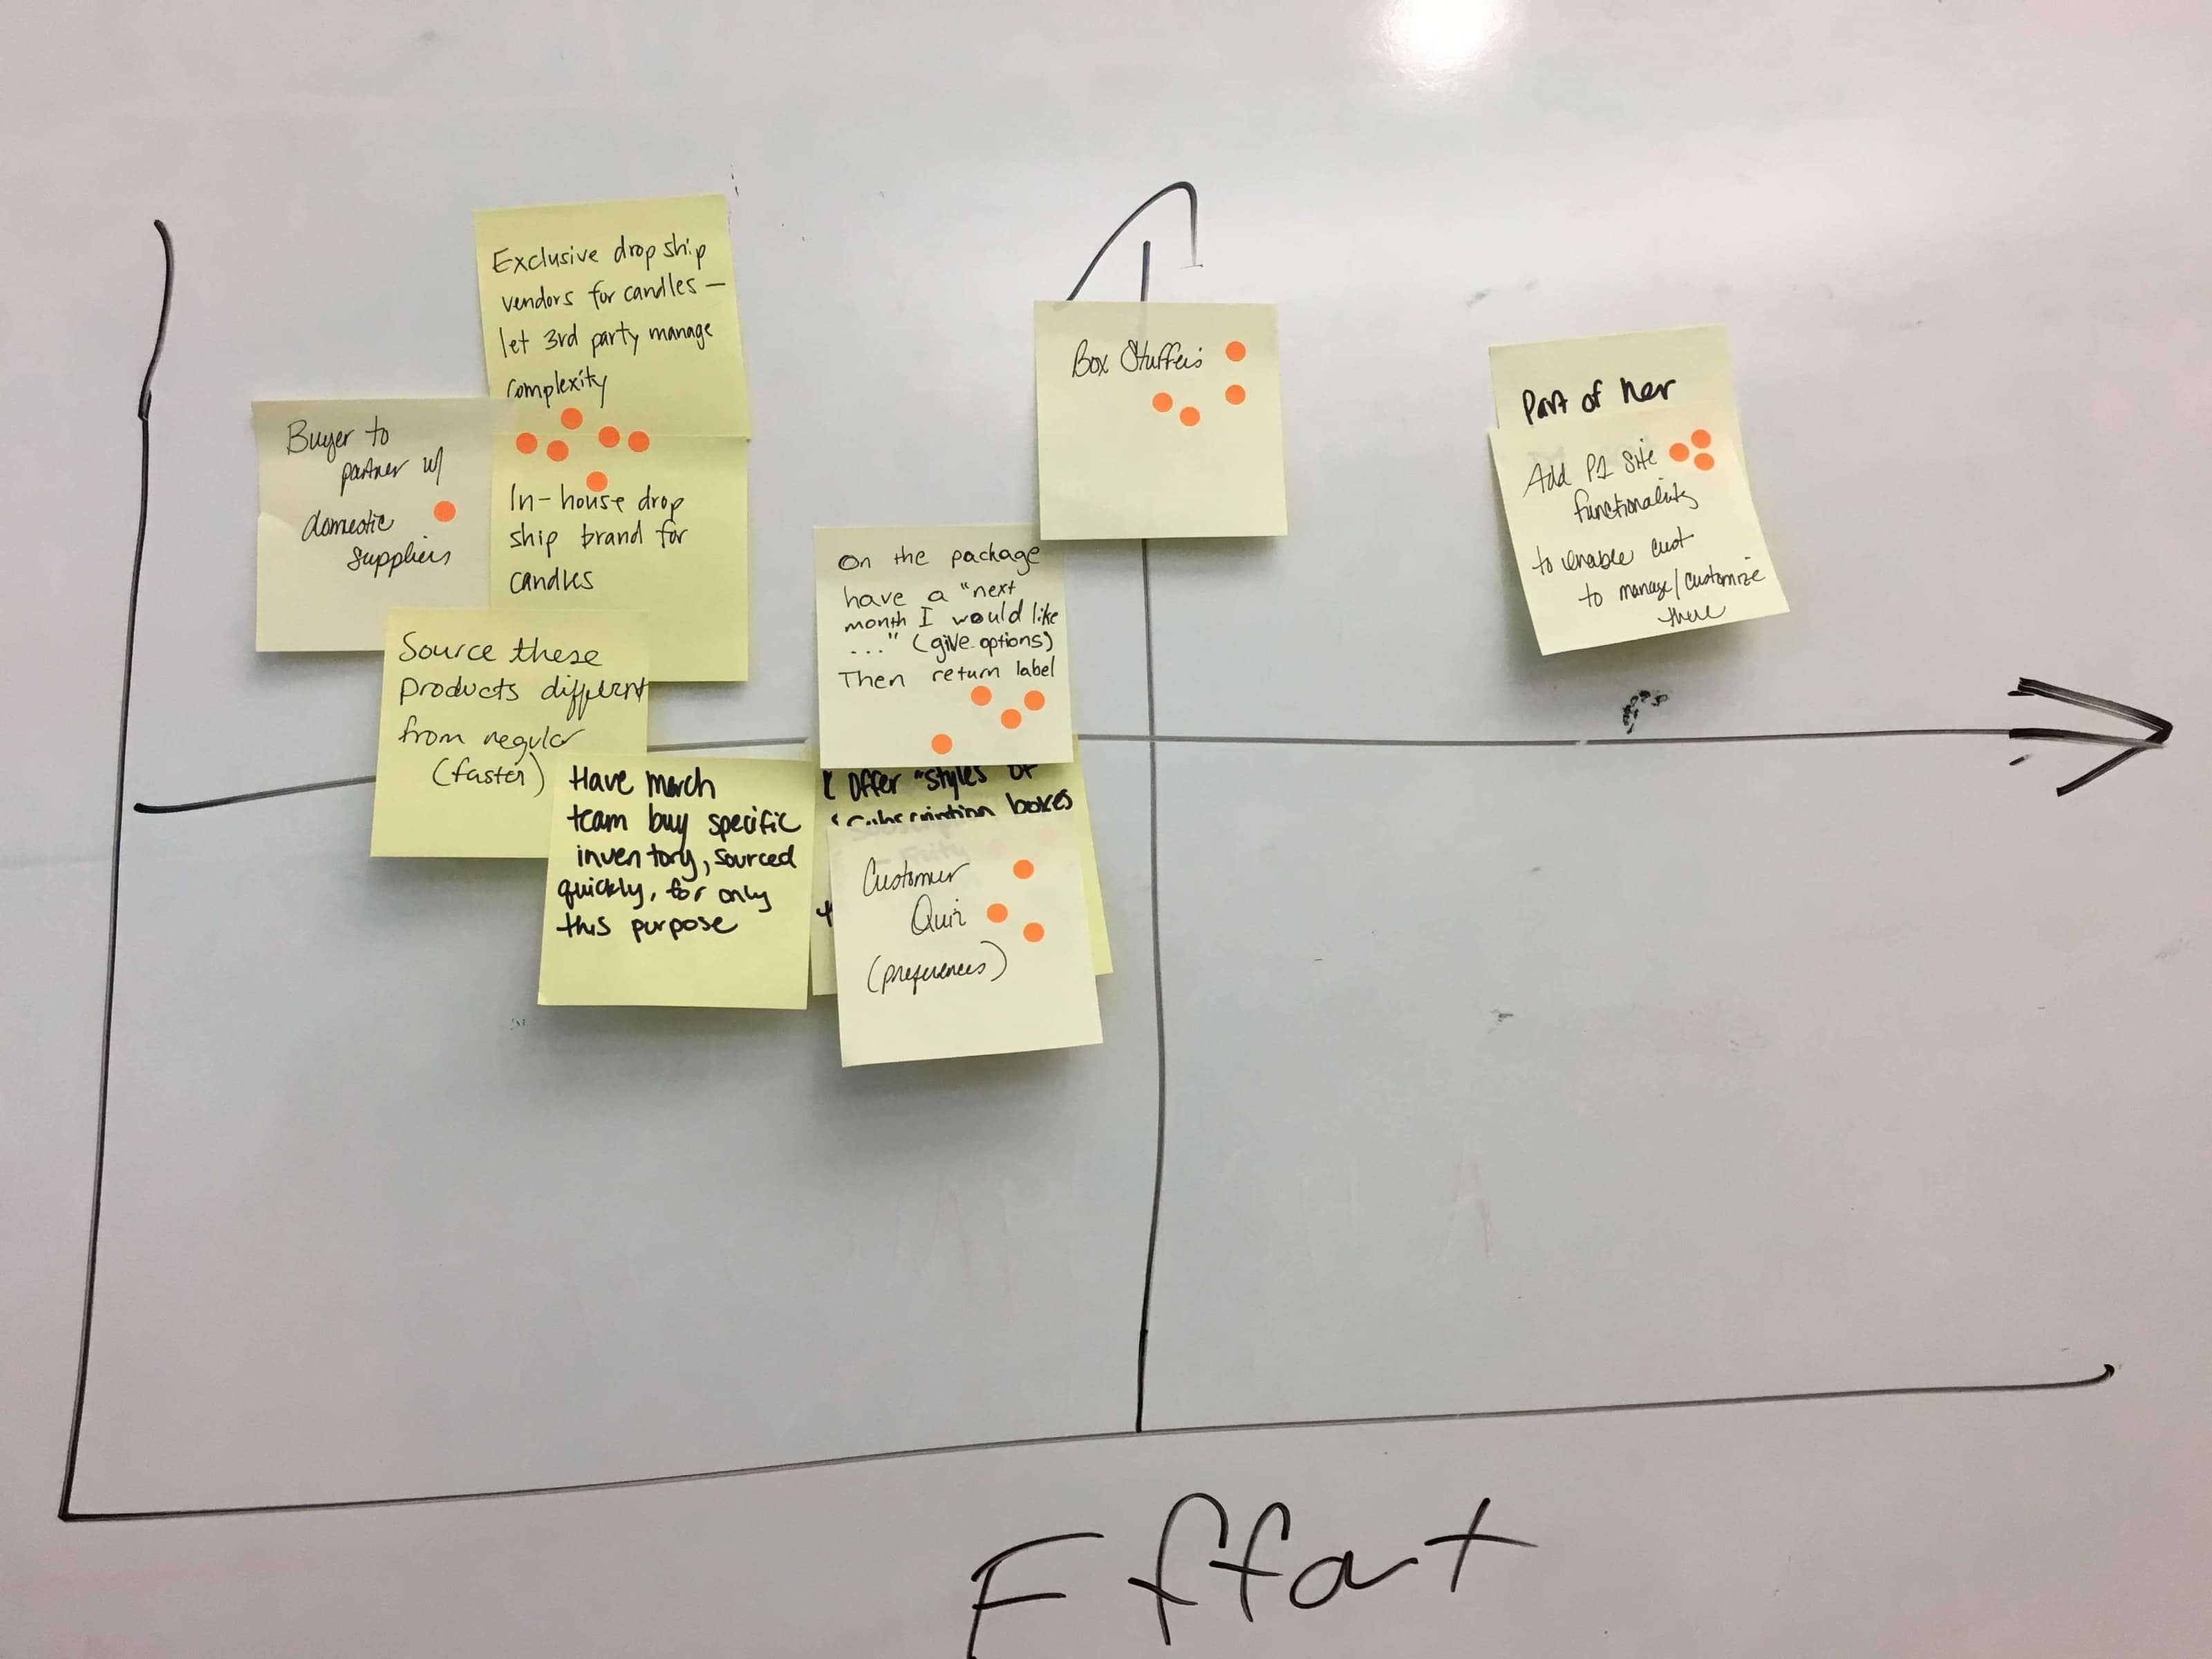 Exclusive drop ship
vendors for candles —
let 3rd party manage
complexity
In-house drop
ship brand for
candles
Buyer to
partner w/
domestic
suppliers
Source these
products different
from regular
(faster)
Have merch
team buy specific
inventory, sourced
quickly, for only
this purpose
On the package
have a "next
month I would like
..." (give options)
Then return label
Offer "styles of
subscription boxes
Customer
Quiz
(preferences)
Box Stuffers
Part of her
Add P1 Site
functionality
to enable cust
to manage/customize
there
Effort